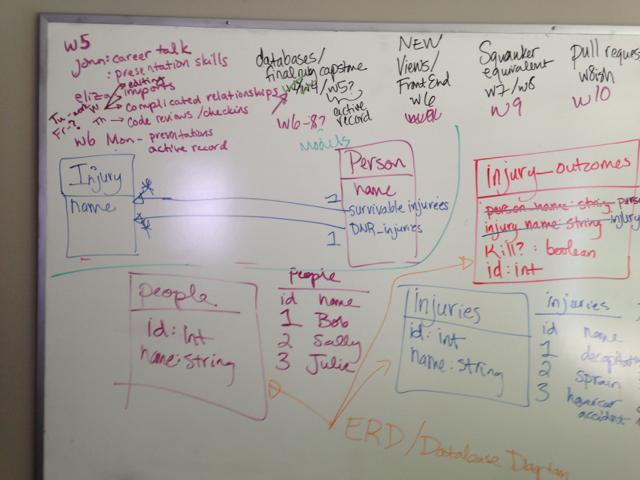 W5
John: career talk
: presentation skills
editing
eliza imports
Tu
W → complicated relationships
Fr-?
Th → code reviews/checkins
W6 Mon - presentations
active record
databases/
final rub capstone
w4/w5?
active
record
W6-8?
models
NEW
Views/
Front End
W6
Squawker
equivalent
W7/W8
W9
pull request
w8ish
W10
Injury
name
*
*
1
1
Person
name
survivable injuries
DNR_injuries
injury_outcomes
person name: string
injury name: string injury
Kill?: boolean
id: int
people
id: int
name: string
people
id name
1 Bob
2 Sally
3 Julie
injuries
id: int
name: string
injuries
id name
1
2 sprain
3 hovercar
accident
ERD/Database Diagram